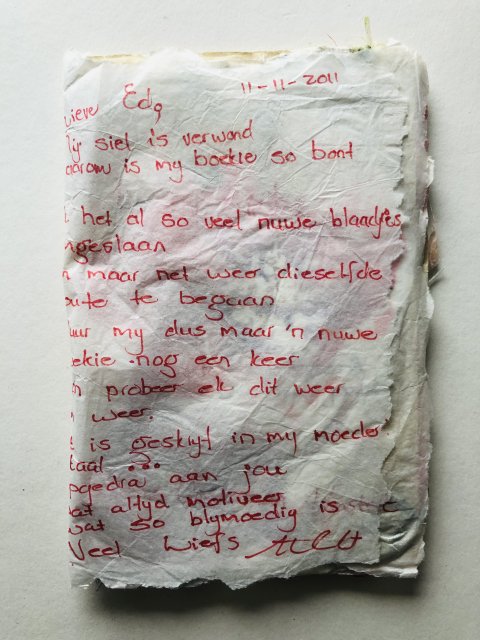 11-11-2011
lieve Ed,
My siel is verwond
aarom is my boekie so bont
k het al so veel nuwe blaadjies
ngeslaan
n maar net weer dieselfde
oute te begaan
uur my dus maar 'n nuwe
ekie nog een keer
n probeer ek dit weer
n weer.
t is geskryf in my moeder
taal ...
pgedra aan jou
at altyd motiveer
wat so blymoedig is
Veel Liefs